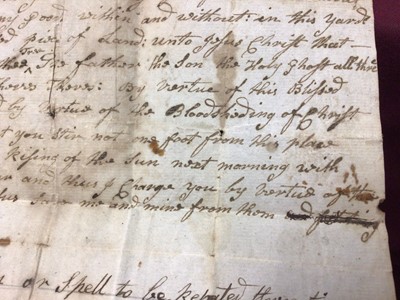 Good within and without: in this yard
piece of Land: unto Jesus Christ that
for
thee The father the Son the Holy Ghost all thre
theves theres: By Vertue of this Blissed
d by Vertue of the Bloodsheding of Christ
t you Stir not one foot from this place
Rising of the Sun next morning with
and thus I Charge you by Vertue of the
Save me and mine from them
or Spell to be Repeted three ti